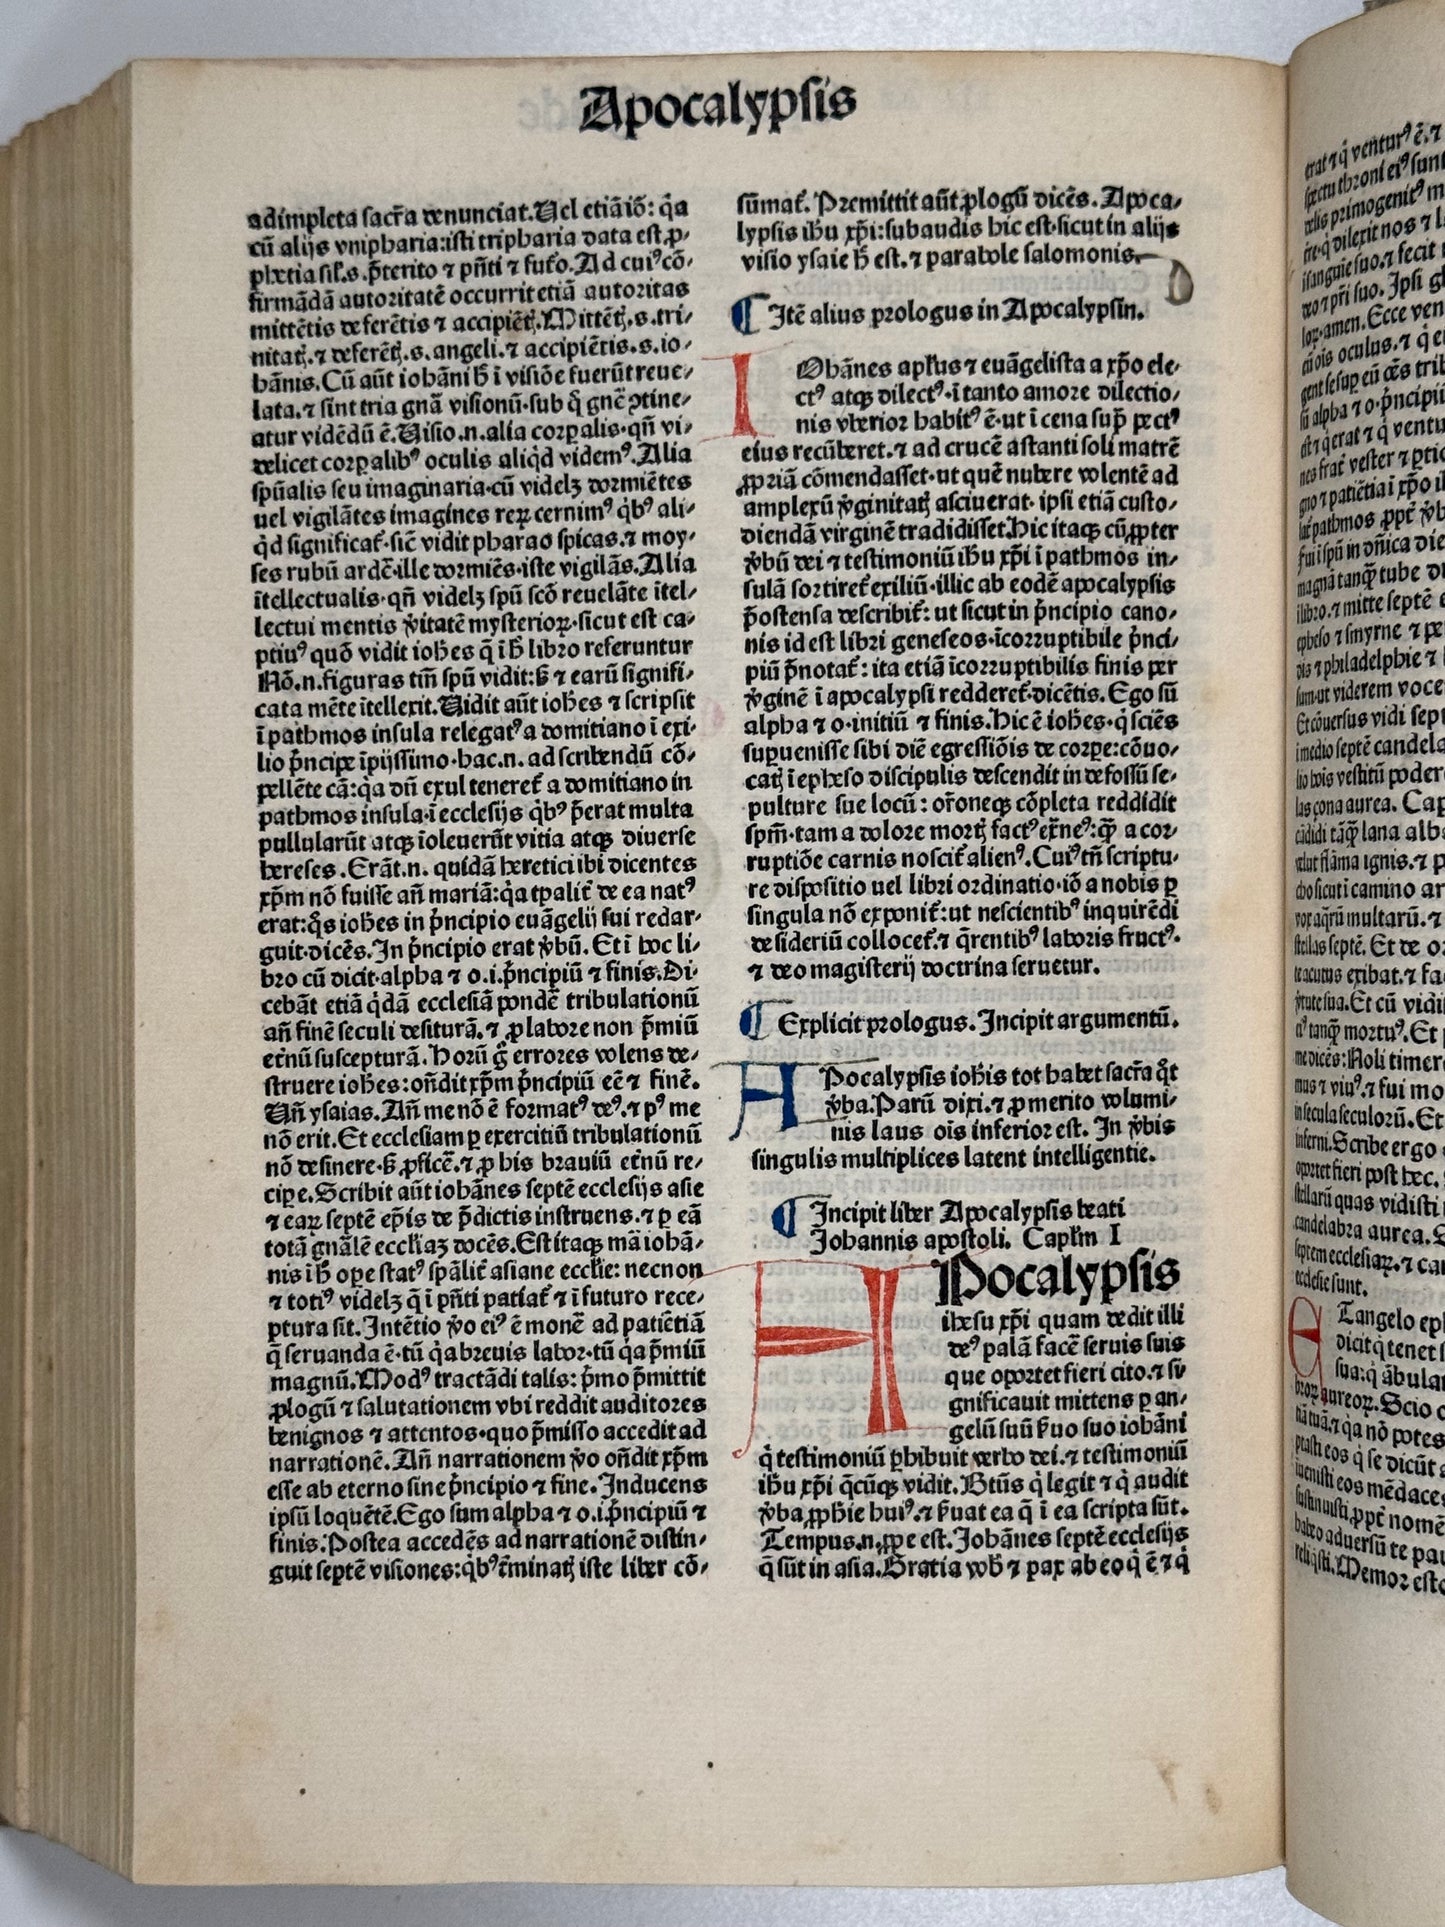 Apocalypsis
adimpleta sacr̃a denunciat. Uel etiã iõ: q̇a
cũ alijs vnipharia: isti tripharia data est ꝓ-
phetia sil̕.s. p̃terito ⁊ pñti ⁊ futꝰo. Ad cuiꝰ cõ-
firmãdã autoritatẽ occurrit etiã autoritas
mittẽtis deferẽtis ⁊ accipiẽtꝭ. Mittẽtꝭ.s. tri-
nitatꝭ. ⁊ deferẽtꝭ.s. angeli. ⁊ accipiẽtis.s. io-
hãnis. Cũ aũt iohãni h̃ ĩ visiõe fuerũt reue-
lata. ⁊ sint tria gñã visionũ. sub q̇ gñẽ ↄtine-
atur vidẽdũ ẽ. Uisio .n. alia corꝑalis. qñ vi-
delicet corꝑalibꝰ oculis aliq̇d videmꝰ. Alia
spũalis seu imaginaria. cũ videlꝫ dormiẽtes
uel vigilãtes imagines reꝝ cernimꝰ q̇bꝰ ali-
q̇d significat̃. sic̃ vidit pharao spicas. ⁊ moy-
ses rubũ ardẽ. ille dormiẽs. iste vigilãs. Alia
ĩtellectualis. qñ videlꝫ spũ scõ reuelãte ĩtel-
lectui mentis v̇itatẽ mysterioꝝ. sicut est ca-
ptiuꝰ quõ vidit ioh̃es q̃ ĩ h̃ libro referuntur
Nõ.n. figuras tm̃ spũ vidit: ꝗ̃ ⁊ earũ signifi-
cata mẽte ĩtellexit. Uidit aũt ioh̃es ⁊ scripsit
ĩ pathmos insula relegatꝰ a domitiano ĩ exi-
lio p̃ncipe ĩpijssimo. hac.n. ad scribendũ cõ-
pellẽte cã: q̇a dũ exul teneret̃ a domitiano in
pathmos insula. ĩ ecclesijs q̇bꝰ p̃erat multa
pullularũt atqꝫ ĩoleuerũt vitia atqꝫ diuerse
hereses. Erãt.n. quidã heretici ibi dicentes
xp̃m nõ fuisse añ mariã: q̇a tp̃alit̃ de ea natꝰ
erat: q̃s ioh̃es in p̃ncipio euãgelij sui redar-
guit. dicẽs. In p̃ncipio erat v̇bũ. Et ĩ hoc li-
bro cũ dicit. alpha ⁊ o.i. p̃ncipiũ ⁊ finis. Di-
cebãt etiã q̇dã ecclesiã pondẽ tribulationũ
añ finẽ seculi desiturã. ⁊ ꝓ labore non p̃miũ
et̃nũ suscepturã. Horũ g̃ errores volens de-
struere ioh̃es: oñdit xp̃m p̃ncipiũ eẽ ⁊ finẽ.
Uñ ysaias. Añ me nõ ẽ formatꝰ deꝰ. ⁊ pꝰ me
nõ erit. Et ecclesiam ꝑ exercitiũ tribulationũ
nõ desinere. ꝗ̃ ꝓficẽ. ⁊ ꝓ his brauiũ et̃nũ re-
cipe. Scribit aũt iohãnes septẽ ecclesijs asie
⁊ eaꝝ septẽ ep̃is de p̃dictis instruens. ⁊ ꝑ eã
totã gñãlẽ eccl̃iaꝫ docẽs. Est itaqꝫ mã iohã-
nis ĩ h̃ ope statꝰ sp̃alit̃ asiane eccl̃ie: necnon
⁊ totiꝰ videlꝫ q̃ ĩ pñti patiat̃ ⁊ ĩ futuro rece-
ptura sit. Intẽtio v̇o eiꝰ ẽ monẽ ad patiẽtiã
q̃ seruanda ẽ. tũ q̇a breuis labor. tũ q̇a p̃miũ
magnũ. Modꝰ tractãdi talis: p̃mo p̃mittit
ꝓlogũ ⁊ salutationem vbi reddit auditores
benignos ⁊ attentos. quo p̃misso accedit ad
narrationẽ. Añ narrationem v̇o oñdit xp̃m
esse ab eterno sine p̃ncipio ⁊ fine. Inducens
ipsũ loquẽtẽ. Ego sum alpha ⁊ o.i. p̃ncipiũ ⁊
finis. Postea accedẽs ad narrationẽ distin-
guit septẽ visiones: q̇bꝰ t̃minatꝭ iste liber cõ-
sũmat̃. Premittit aũt ꝓlogũ dicẽs. Apoca-
lypsis ih̃u xp̃i: subaudis hic est. sicut in alijs
visio ysaie h̃ est. ⁊ parabole salomonis.
¶ Itẽ alius prologus in Apocalypsin.
IOhãnes apl̃us ⁊ euãgelista a xp̃o ele-
ctꝰ atqꝫ dilectꝰ. ĩ tanto amore dilectio-
nis vberior habitꝰ ẽ. ut ĩ cena sup̃ pectꝰ
eius recũberet. ⁊ ad crucẽ astanti soli matrẽ
ꝓpriã cõmendasset. ut quẽ nubere volentẽ ad
amplexũ v̇ginitatꝭ asciuerat. ipsi etiã custo-
diendã virginẽ tradidisset. Hic itaqꝫ cũ ꝓpter
v̇bũ dei ⁊ testimoniũ ih̃u xp̃i ĩ pathmos in-
sulã sortiret̃ exiliũ. illic ab eodẽ apocalypsis
p̃ostensa describit̃: ut sicut in p̃ncipio cano-
nis id est libri geneseos. ĩcorruptibile p̃nci-
piũ p̃notat̃: ita etiã ĩcorruptibilis finis per
v̇ginẽ ĩ apocalypsi redderet̃. dicẽtis. Ego sũ
alpha ⁊ o. initiũ ⁊ finis. Hic ẽ ioh̃es. q̇ sciẽs
supuenisse sibi diẽ egressiõis de corpe: cõuo-
catꝭ ĩ epheso discipulis descendit in defossũ se-
pulture sue locũ: or̃oneqꝫ cõpleta reddidit
spm̃. tam a dolore mortꝭ factꝰ ext̃neꝰ: q̃ꝫ a cor-
ruptiõe carnis noscit̃ alienꝰ. Cuiꝰ tñ scriptu-
re dispositio uel libri ordinatio. iõ a nobis ꝑ
singula nõ exponit̃: ut nescientibꝰ inquirẽdi
desideriũ collocet̃. ⁊ q̃rentibꝰ laboris fructꝰ.
⁊ deo magisterij doctrina seruetur.
¶ Explicit prologus. Incipit argumentũ.
APocalypsis ioh̃is tot habet sacr̃a q̃t
v̇ba. Parũ dixi. ⁊ ꝓ merito volumi-
nis laus oĩs inferior est. In v̇bis
singulis multiplices latent intelligentie.
¶ Incipit liber Apocalypsis beati
Johannis apostoli. Capl̃m I
APocalypsis
ihesu xp̃i quam dedit illi
deꝰ palã facẽ seruis suis
que oportet fieri cito. ⁊ si-
gnificauit mittens ꝑ an-
gelũ suũ ẜuo suo iohãni
q̇ testimoniũ ꝑhibuit verbo dei. ⁊ testimoniũ
ih̃u xp̃i q̃cũqꝫ vidit. Btũs q̇ legit ⁊ q̇ audit
v̇ba ꝓph̃ie huiꝰ. ⁊ ẜuat ea q̃ ĩ ea scripta sũt.
Tempus.n. ꝓpe est. Johãnes septẽ ecclesijs
q̃ sũt in asia. Gratia vob̃ ⁊ pax ab eo q̇ ẽ ⁊ q̇
erat ⁊ q̇ venturꝰ ẽ. ⁊
spectu throni eiꝰ sunt
primogenitꝰ m
q̇ dilexit nos ⁊ l
sanguie suo. ⁊ fecit
deo ⁊ pr̃i suo. Ipsi gl
amen. Ecce ven
oĩs oculus. ⁊ q̇ e
gent se sup eũ oẽs trib
sũ alpha ⁊ o. p̃ncipi
est ⁊ q̇ erat ⁊ q̇ ventu
frat̃ vester ⁊ ꝑtic
⁊ patiẽtia ĩ xp̃o ih
pathmos ꝓpt̃ v̇b
fui ĩ spũ in dñica die
magnã tanq̃ꝫ tube di
libro. ⁊ mitte septẽ e
epheso ⁊ smyrne ⁊ pe
⁊ philadelphie ⁊ l
ut viderem voce
Et cõuersus vidi sept
ĩ medio septẽ candela
vestitũ podere
zona aurea. Cap
cãdidi tãq̃ꝫ lana alba
velut flãma ignis. ⁊ p
sicut ĩ camino ar
vox aq̃rũ multarũ. ⁊
stellas septẽ. Et de o
acutus exibat. ⁊ fa
v̇tute sua. Et cũ vidi
tanq̃ꝫ mortuꝰ. Et p
me dicẽs: Noli timer
mus ⁊ viuꝰ. ⁊ fui mo
in secula seculorũ. Et
inferni. Scribe ergo
oportet fieri post hec.
stellarũ quas vidisti
candelabra aurea. S
septem ecclesiaꝝ. ⁊ can
ecclesie sunt.
ETangelo eph
dicit q̇ tenet s
sua: q̇ ãbulat
aureoꝝ. Scio o
tuã. ⁊ q̇a nõ potes
eos q̇ se dicũt a
eos mẽdaces
sustinuisti. ꝓpt̃ nomẽ
habeo aduersũ te pau
reliq̇sti. Memor esto